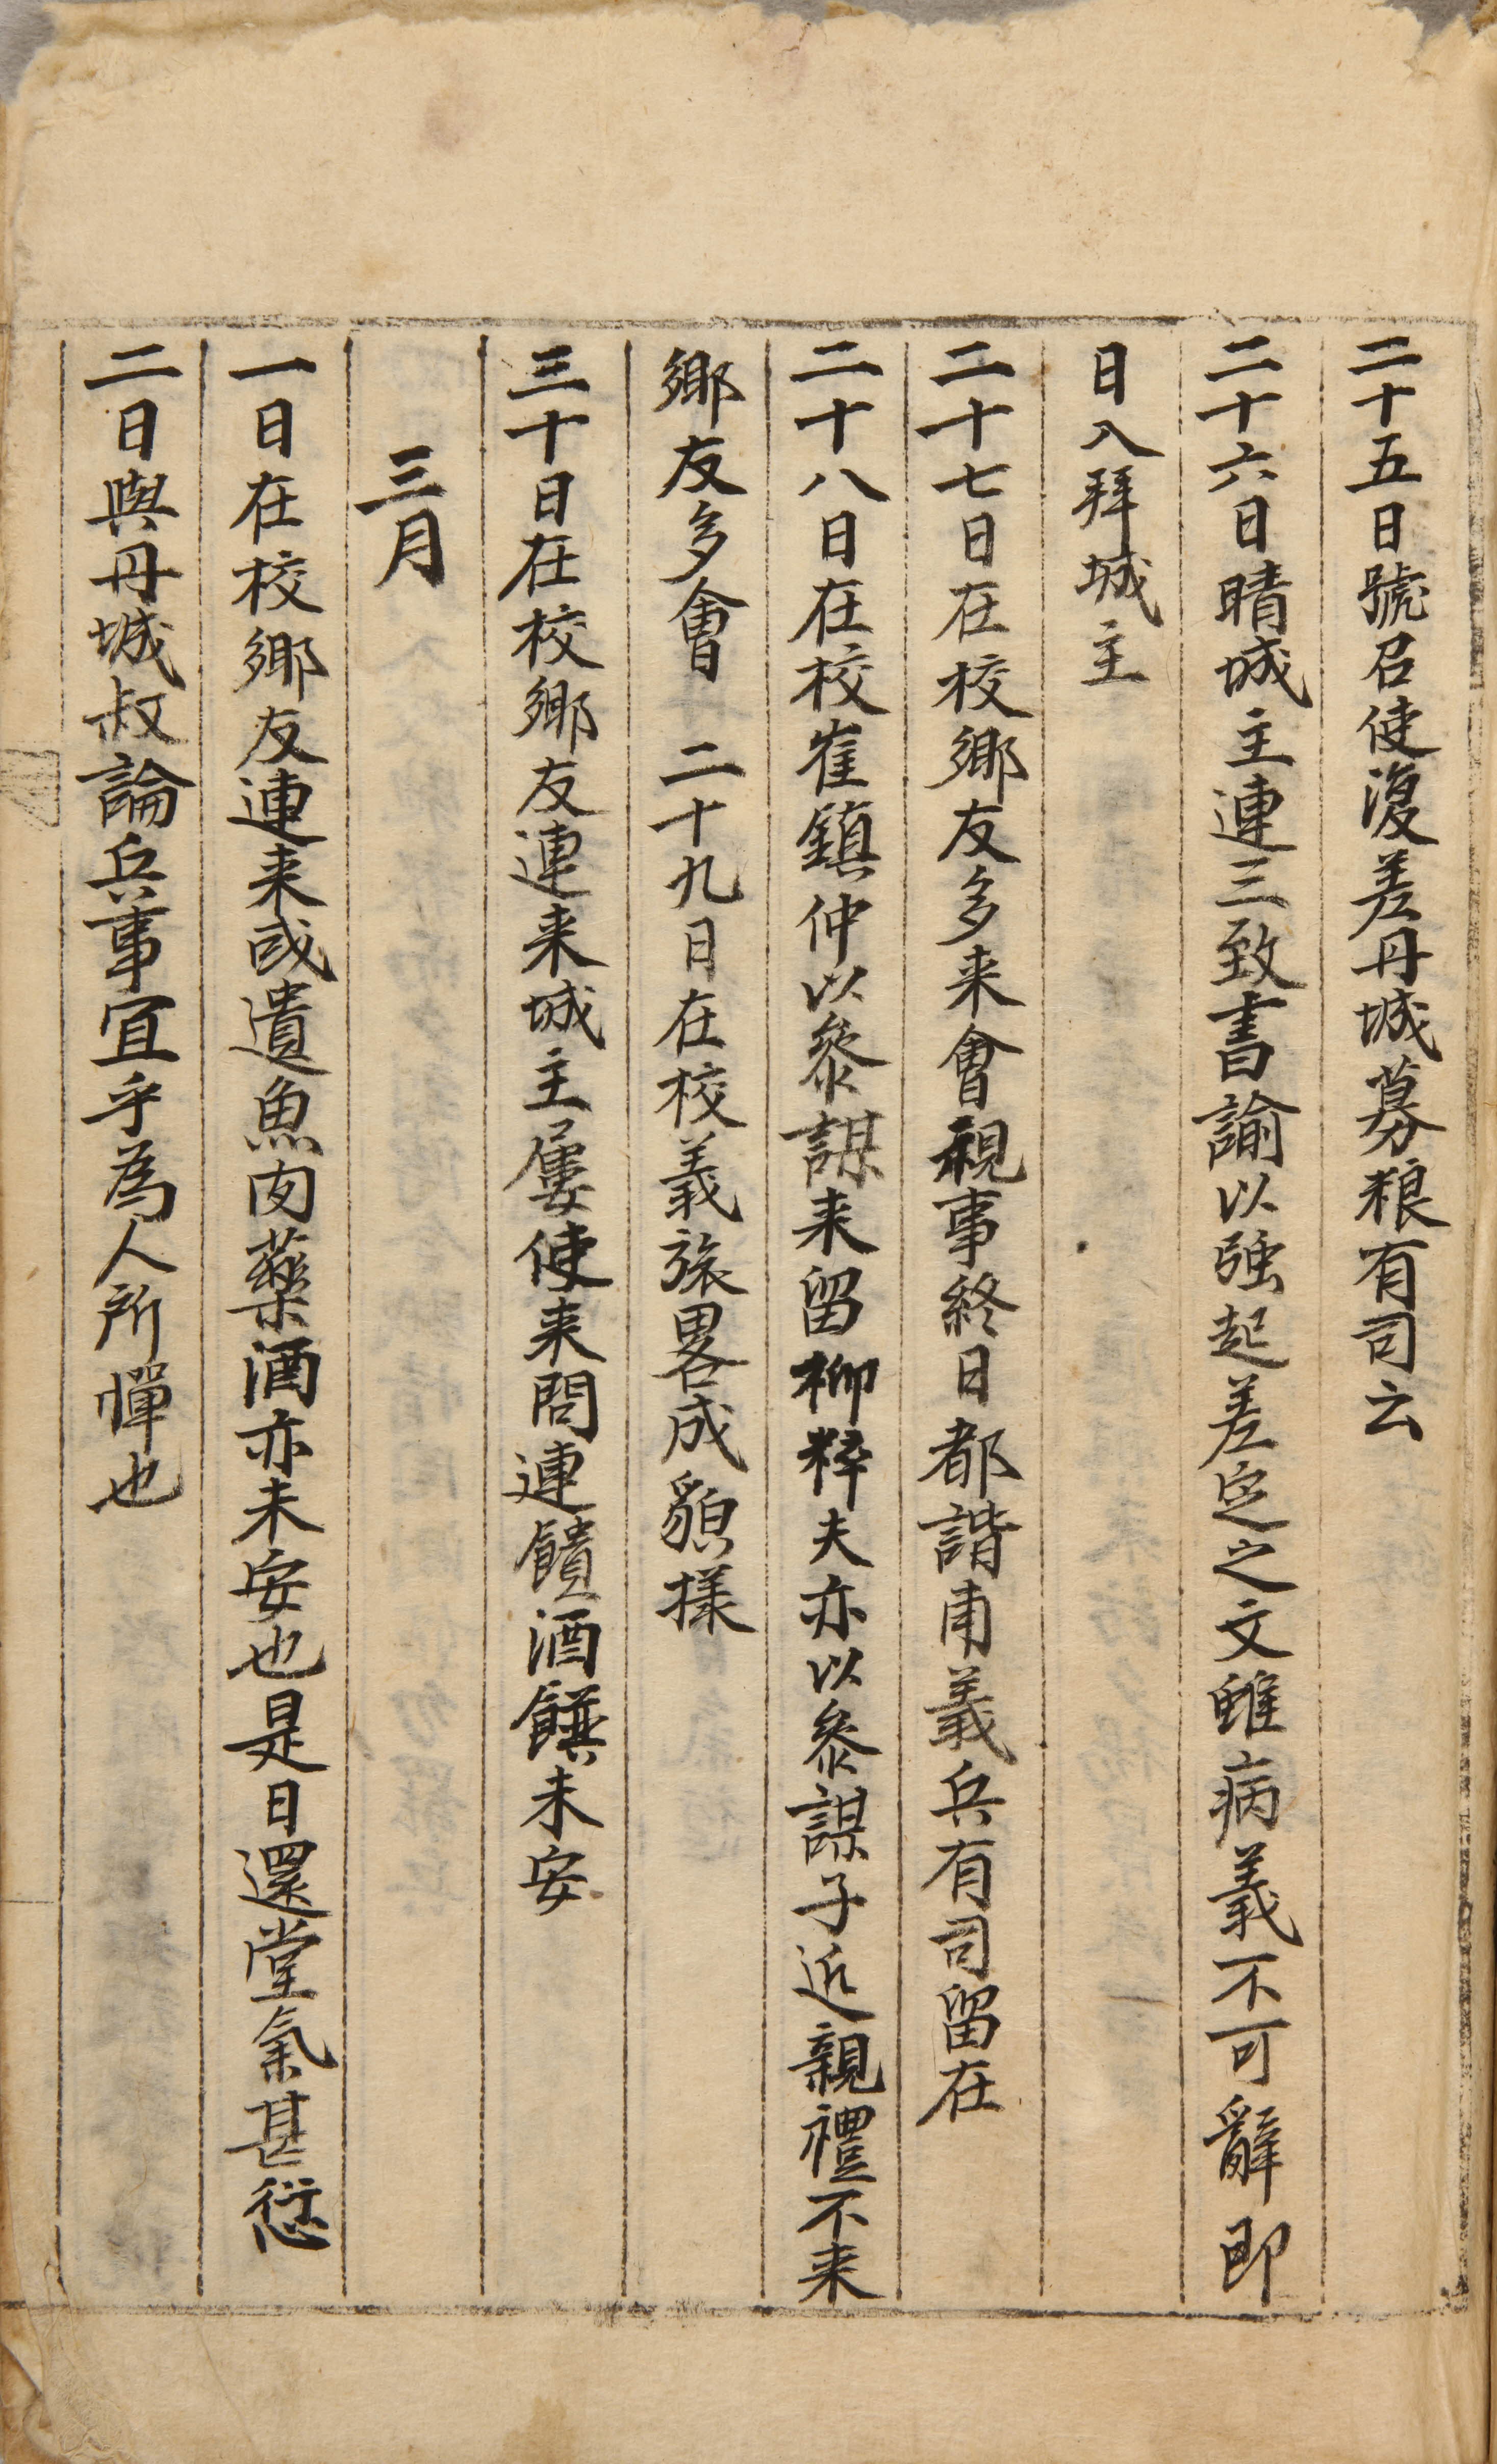 二十五日號召使復差丹城募粮有司云
二十六日晴城主連三致書諭以强起差定之文雖病義不可辭即
日入拜城主
二十七日在校鄉友多来會視事終日都諧甫義兵有司留在
二十八日在校崔鎮仲以叅謀来留柳粹夫亦以叅謀子近親禮不来
鄉友多會 二十九日在校義旅畧成貌樣
三十日在校鄉友連来城主屢使来問連饋酒饌未安
三月
一日在校鄉友連来或遺魚肉藥酒亦未安也是日還堂氣甚愆
二日與丹城叔論兵事宜乎為人所憚也